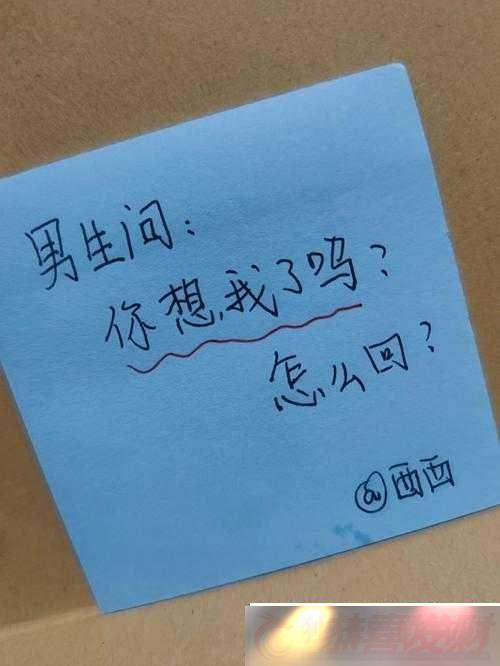 男生间:
你想我了吗?
怎么回?
@西西